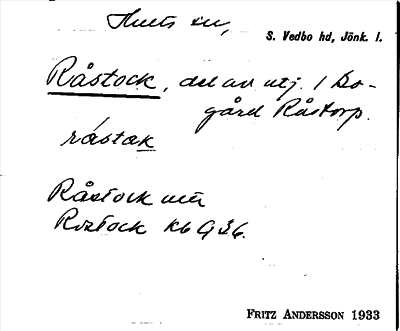 Hults sn,
S. Vedbo hd, Jönk. l.
Råstock, del av utj. 1 Bo-
gård Råstorp.
råstak
Råstock utj
Rostock Kb G 36.
FRITZ ANDERSSON 1933